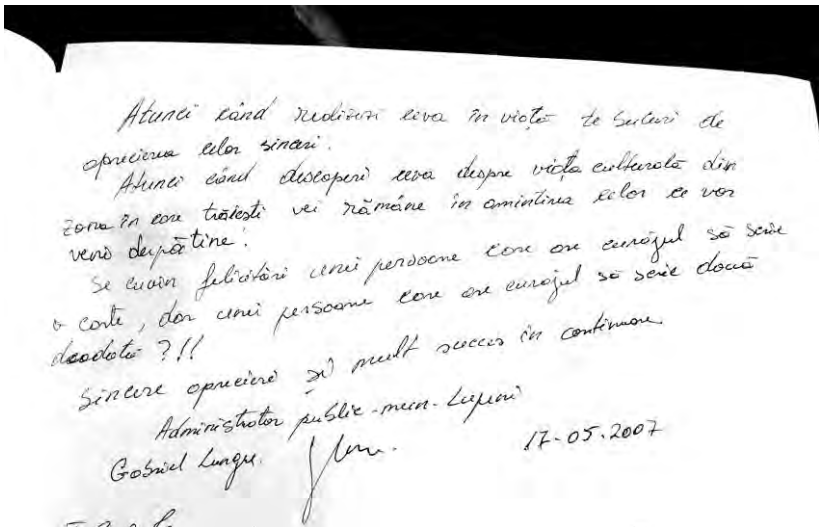 Atunci când realizezi ceva în viață te bucuri de
aprecierea celor sinceri.
Atunci când descoperi ceva despre viața culturală din
zona în care trăiești vei rămâne în amintirea celor ce vor
veni după tine!
Se cuvin felicitări unei persoane care are curajul să scrie
o carte, dar unei persoane care are curajul să scrie două
deodată ?!!
Sincere aprecieri și mult succes în continuare
Administrator public - mun. Lupeni
Gabriel Lungu. 17-05.2007